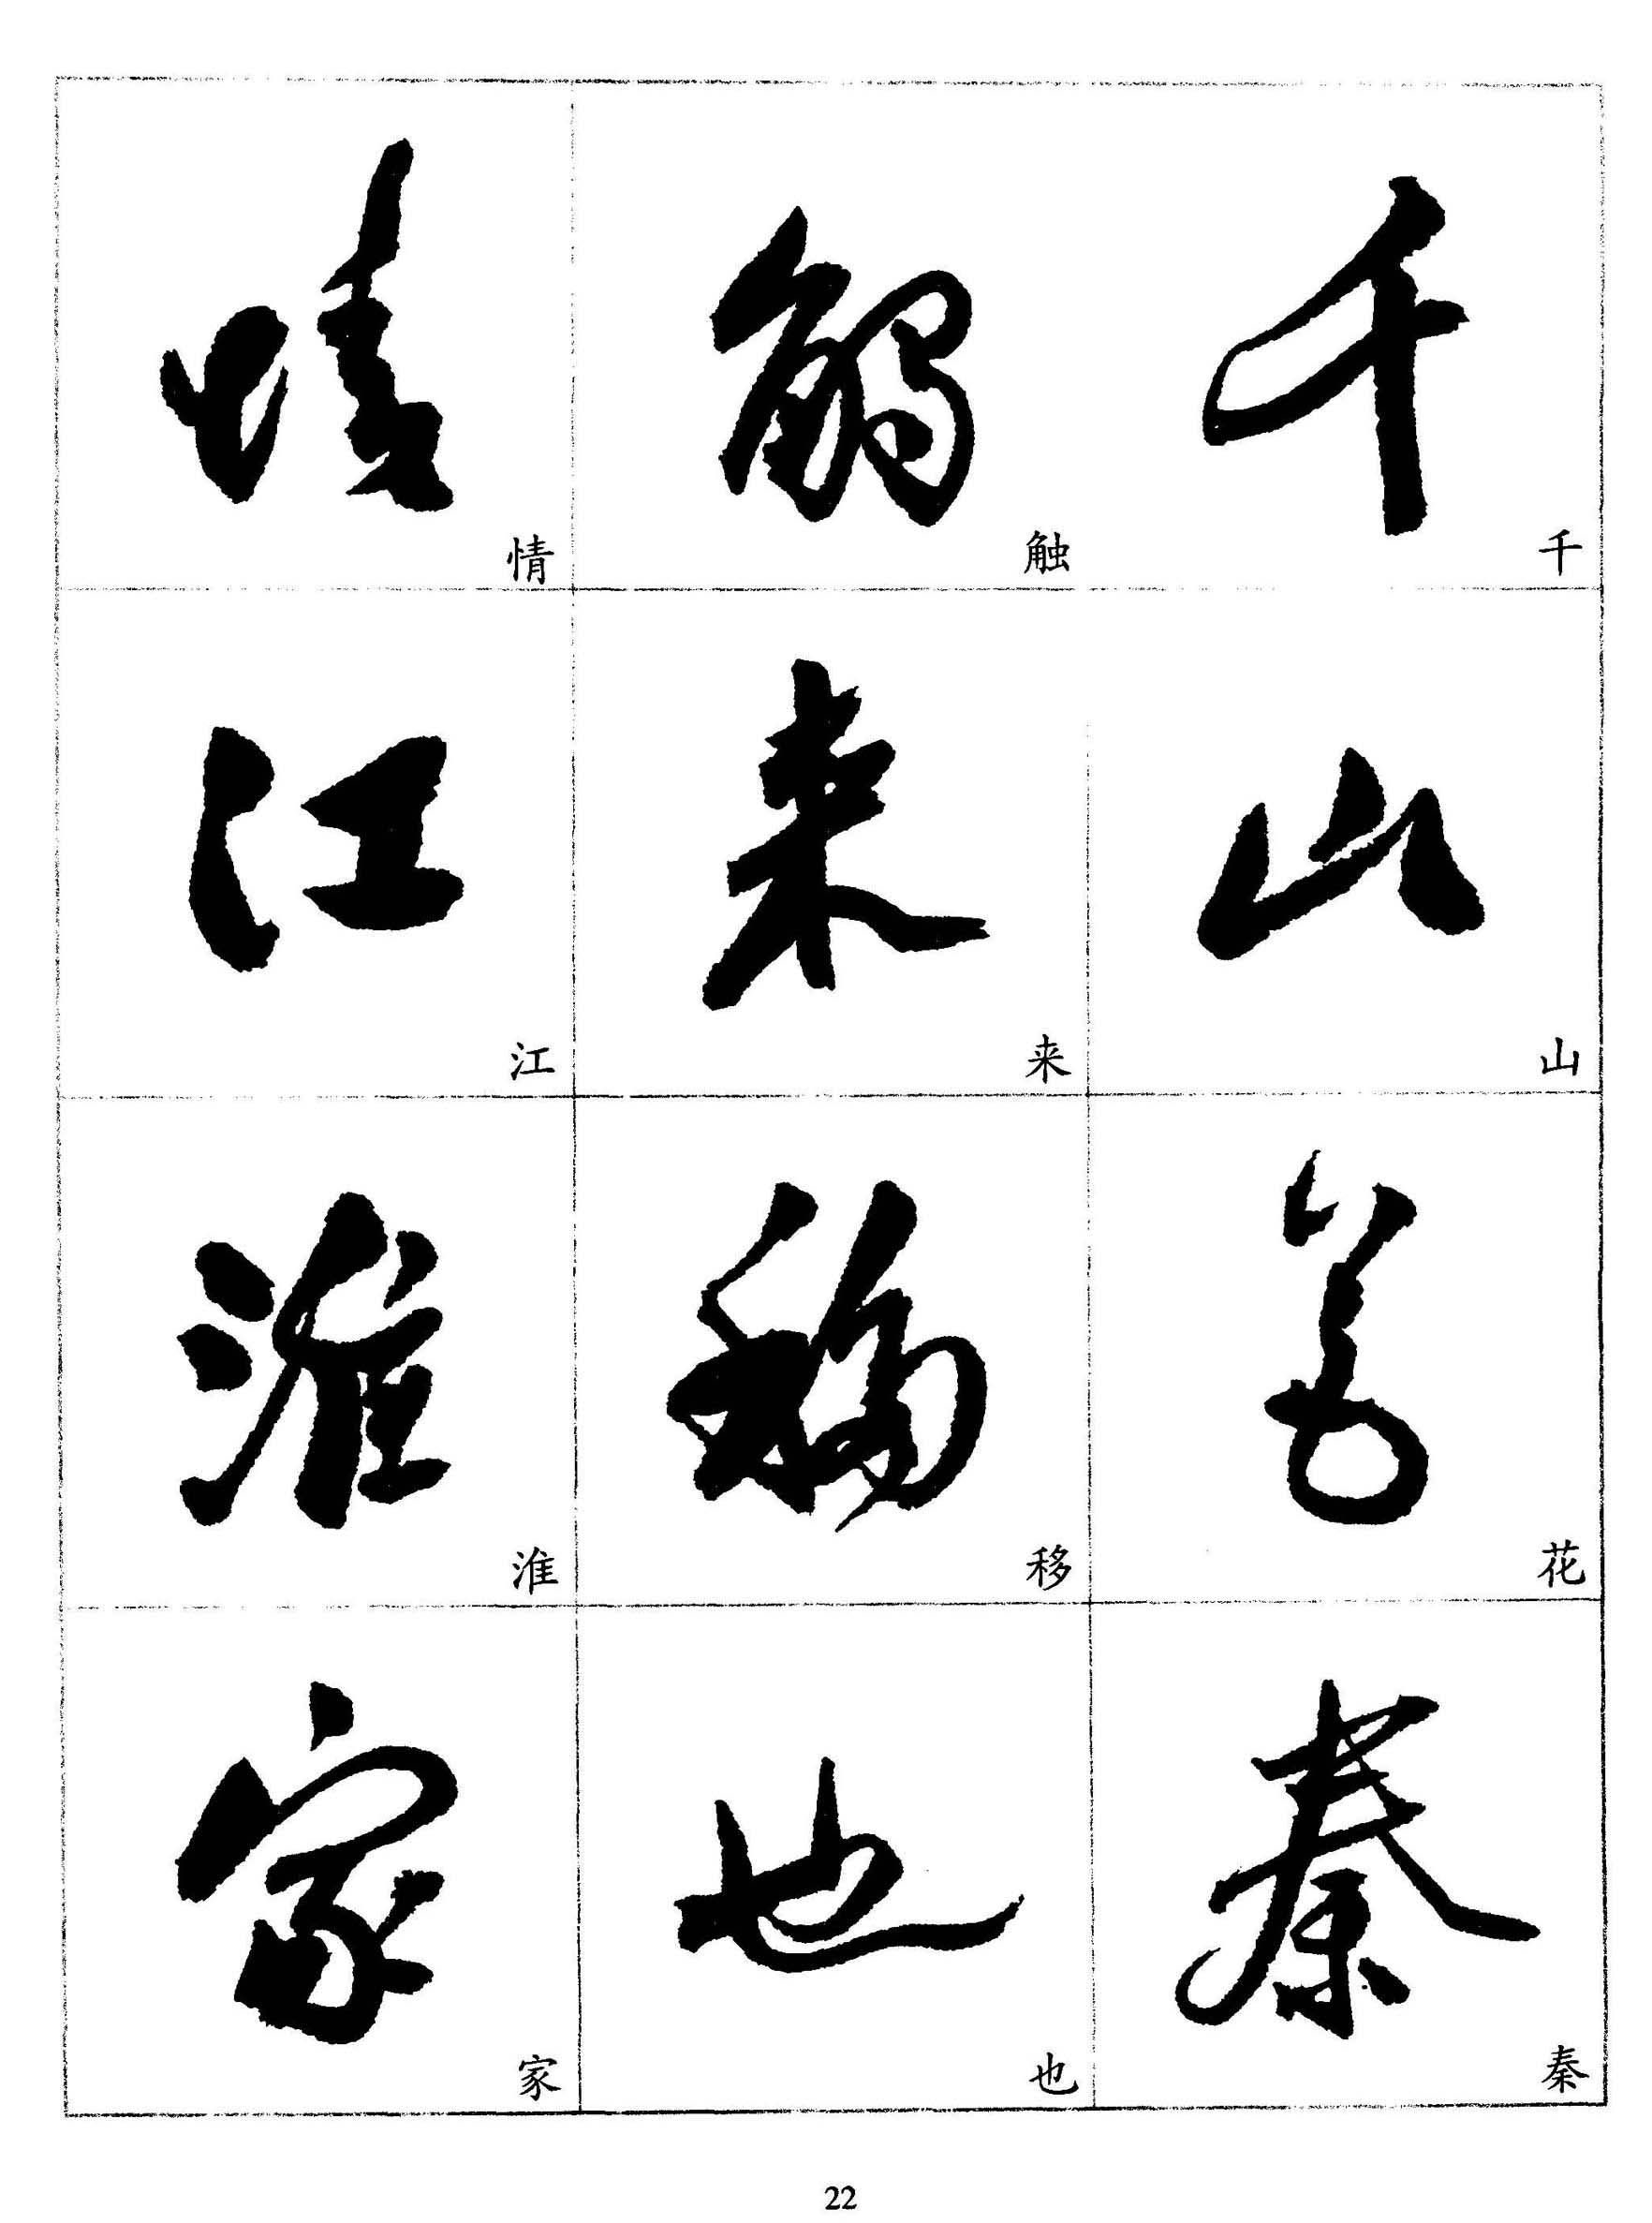 千山花秦
千山花秦
觸来移也
触来移也
情江淮家
情江淮家
22